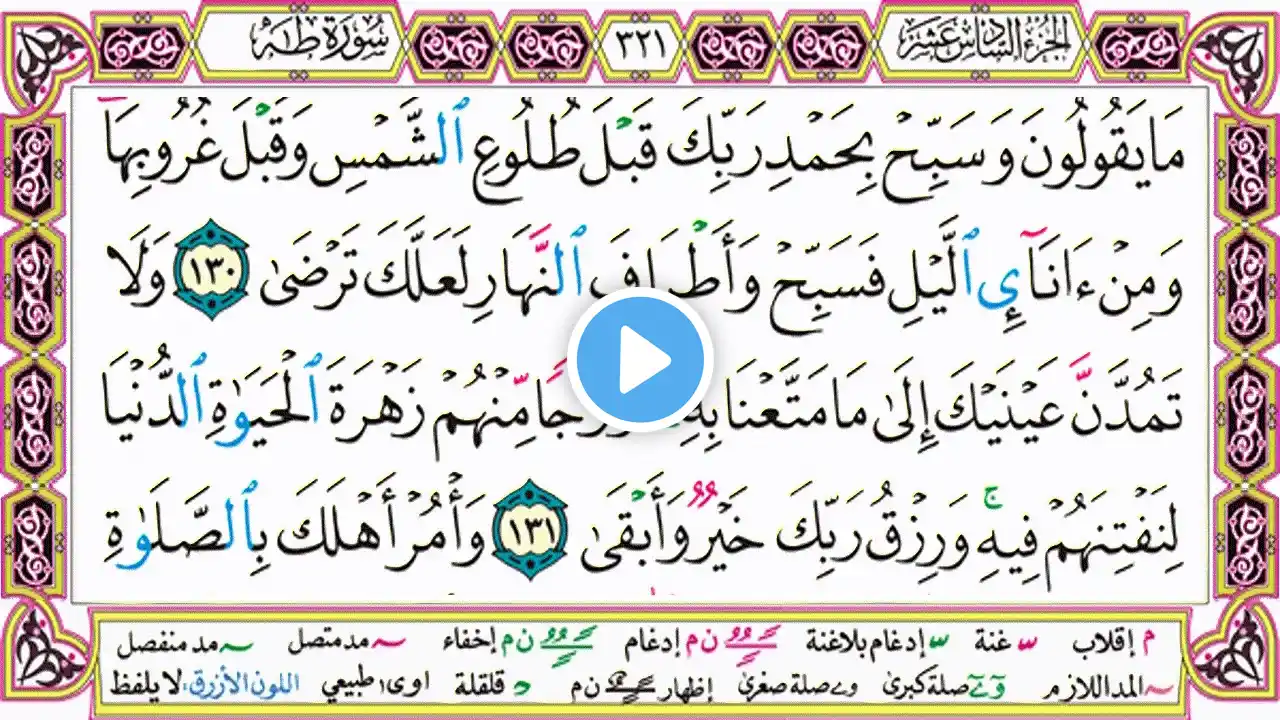 الجزء السادس عشر ٣٢١ سورة طه
مَا يَقُولُونَ وَسَبِّحْ بِحَمْدِ رَبِّكَ قَبْلَ طُلُوعِ ٱلشَّمْسِ وَقَبْلَ غُرُوبِهَآ
وَمِنْ ءَانَآئِ ٱلَّيْلِ فَسَبِّحْ وَأَطْرَافَ ٱلنَّهَارِ لَعَلَّكَ تَرْضَىٰ ١٣٠ وَلَا
تَمُدَّنَّ عَيْنَيْكَ إِلَىٰ مَا مَتَّعْنَا بِهِۦٓ مِّنْهُمْ زَهْرَةَ ٱلْحَيَوٰةِ ٱلدُّنْيَا
لِنَفْتِنَهُمْ فِيهِ ۚ وَرِزْقُ رَبِّكَ خَيْرٌ وَأَبْقَىٰ ١٣١ وَأْمُرْ أَهْلَكَ بِٱلصَّلَوٰةِ
م إقلاب ّ غنة ّ إدغام بلاغنة ن م إدغام ن م إخفاء ~ مد متصل ~ مد منفصل
~ المد اللازم و ے صلة كبرىٰ و ے صلة صغرىٰ إظهار ن م قلقلة اوى طبيعي اللون الأزرق: لا يلفظ